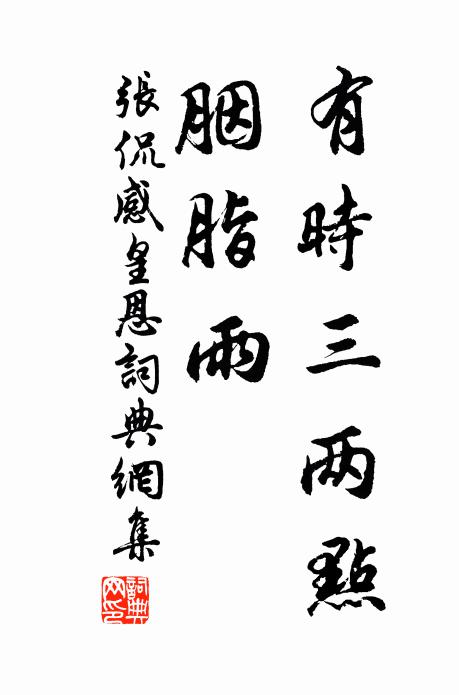 有時三两點
胭脂雨
張侃感皇恩詞典網集
詞典网印